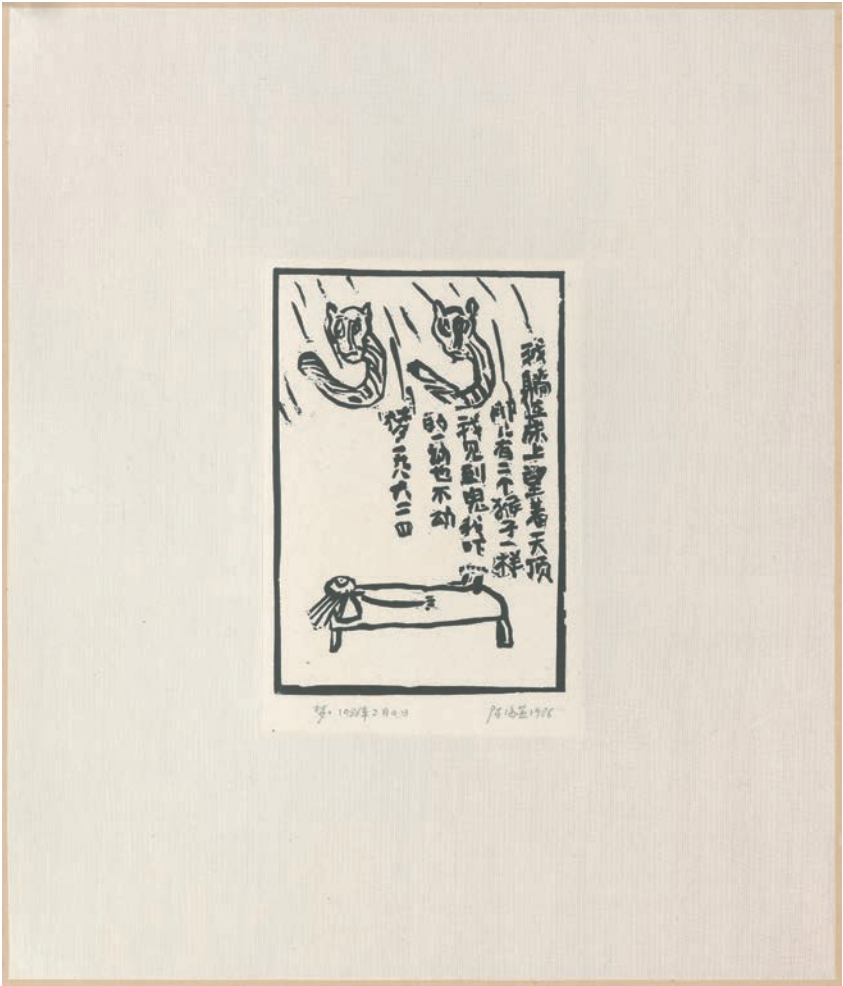 我躺在床上望着天顶
那儿有二个猴子一样
我见到鬼我吓
的一动也不动
梦一九八六二四
梦·1986年2月4日
1986